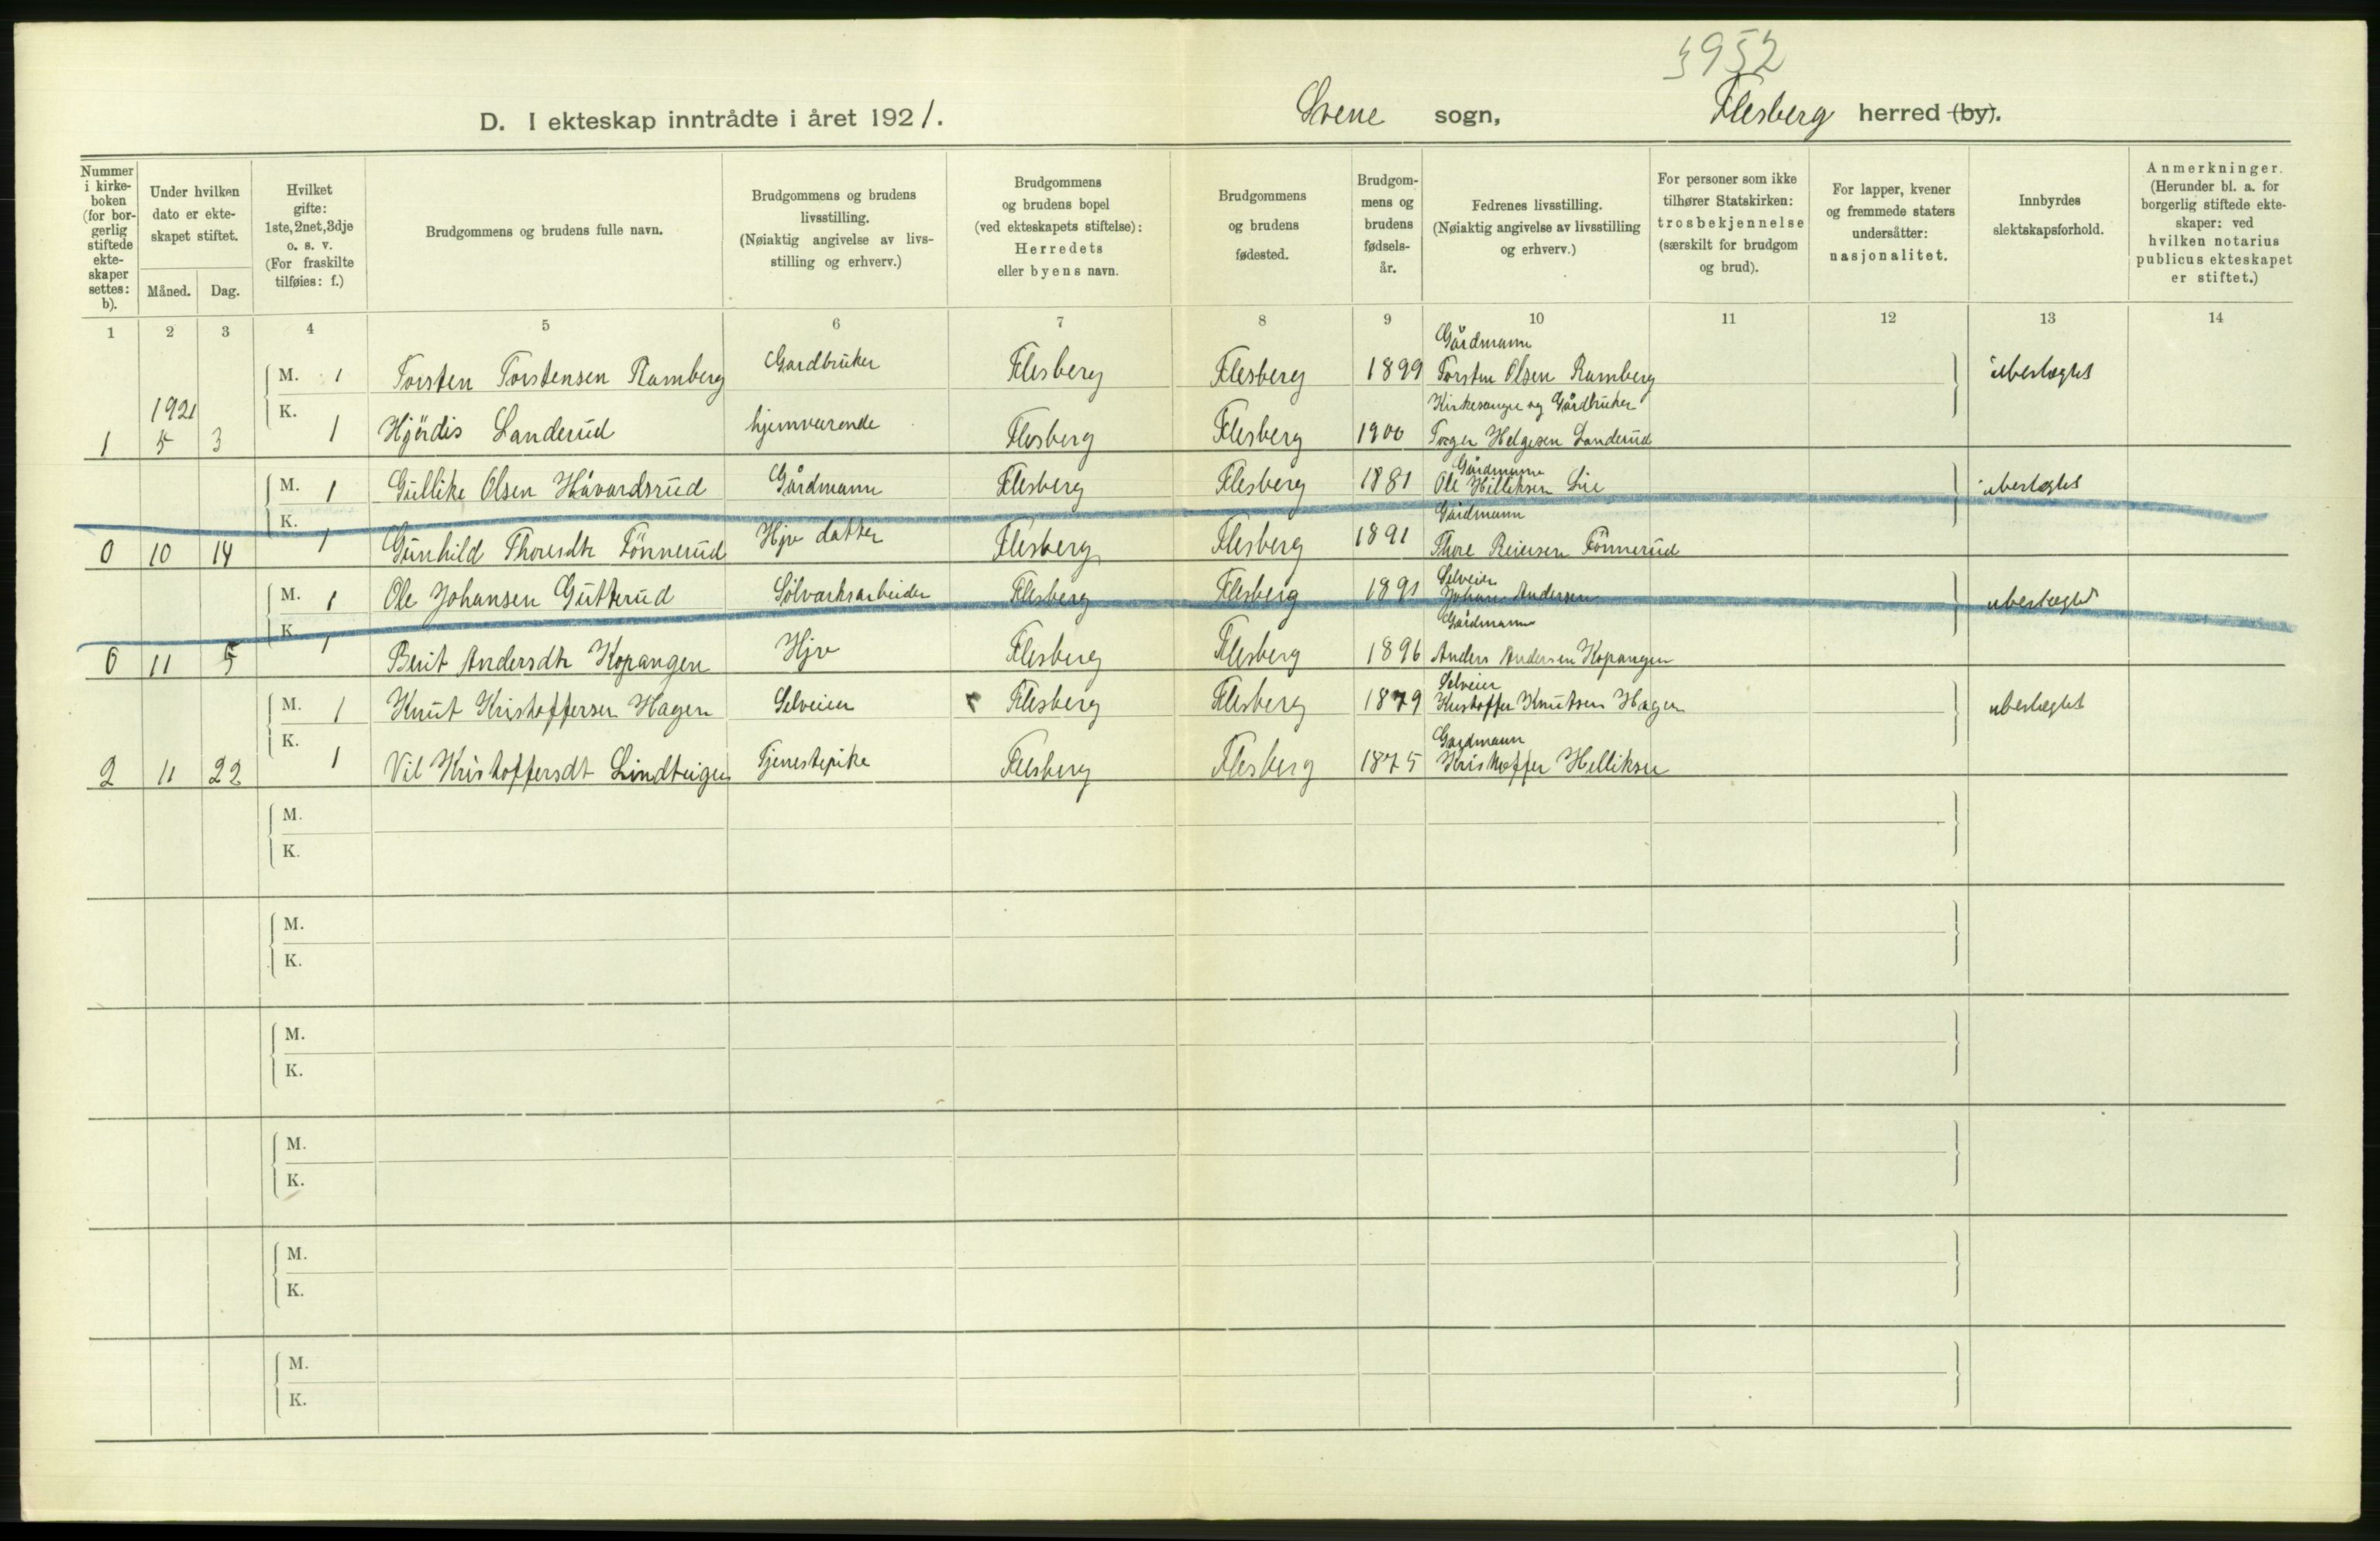 3952
D. I ekteskap inntrådte i året 1921. Svene sogn, Flesberg herred (by).
Nummer i kirke- boken (for bor- gerlig stiftede ekte- skaper settes: b).
Under hvilken dato er ekte- skapet stiftet.
Måned. Dag.
Hvilket gifte: 1ste, 2net, 3dje o. s. v. (For fraskilte tilføies: f.)
Brudgommens og brudens fulle navn.
Brudgommens og brudens livsstilling. (Nøiaktig angivelse av livs- stilling og erhverv.)
Brudgommens og brudens bopel (ved ekteskapets stiftelse): Herredets eller byens navn.
Brudgommens og brudens fødested.
Brudgom- mens og brudens fødsels- år.
Fedrenes livsstilling. (Nøiaktig angivelse av livsstilling og erhverv.)
For personer som ikke tilhører Statskirken: trosbekjennelse (særskilt for brudgom og brud).
For lapper, kvener og fremmede staters undersåtter: nasjonalitet.
Innbyrdes slektskapsforhold.
Anmerkninger. (Herunder bl. a. for borgerlig stiftede ekte- skaper: ved hvilken notarius publicus ekteskapet er stiftet.)
1 2 3 4 5 6 7 8 9 10 11 12 13 14
Gårdmann
M. 1 Torsten Torstensen Ramberg Gardbruker Flesberg Flesberg 1899 Torsten Olsen Ramberg ubeslegtet
1921 K. Kirkesanger og Gårdbruker
1 5 3 1 Hjördis Landerud hjemværende Flesberg Flesberg 1900 Torger Helgesen Landerud
Gårdmann
M. 1 Gullike Olsen Håvardsrud Gårdmann Flesberg Flesberg 1881 Ole Helliksen Lie ubeslegtet
K. Gårdmann
0 10 14 1 Gunhild Thoresdtr Tönnerud Hjv datter Flesberg Flesberg 1891 Thore Reiersen Tönnerud
Selveier
M. 1 Ole Johansen Gutterud Sölvverksarbeider Flesberg Flesberg 1891 Johan Andersen ubeslegtet
K. Gårdmann
0 11 5 1 Berit Andersdtr Kopangen Hjv Flesberg Flesberg 1896 Anders Andersen Kopangen
Selveier
M. 1 Knut Kristoffersen Hagen Selveier Flesberg Flesberg 1879 Kristoffer Knutsen Hagen ubeslegtet
K. Gardmann
2 11 22 1 Vil Kristoffersdt Lindteigen Tjenestepike Flesberg Flesberg 1875 Kristoffer Helliksen
M.
K.
M.
K.
M.
K.
M.
K.
M.
K.
M.
K.